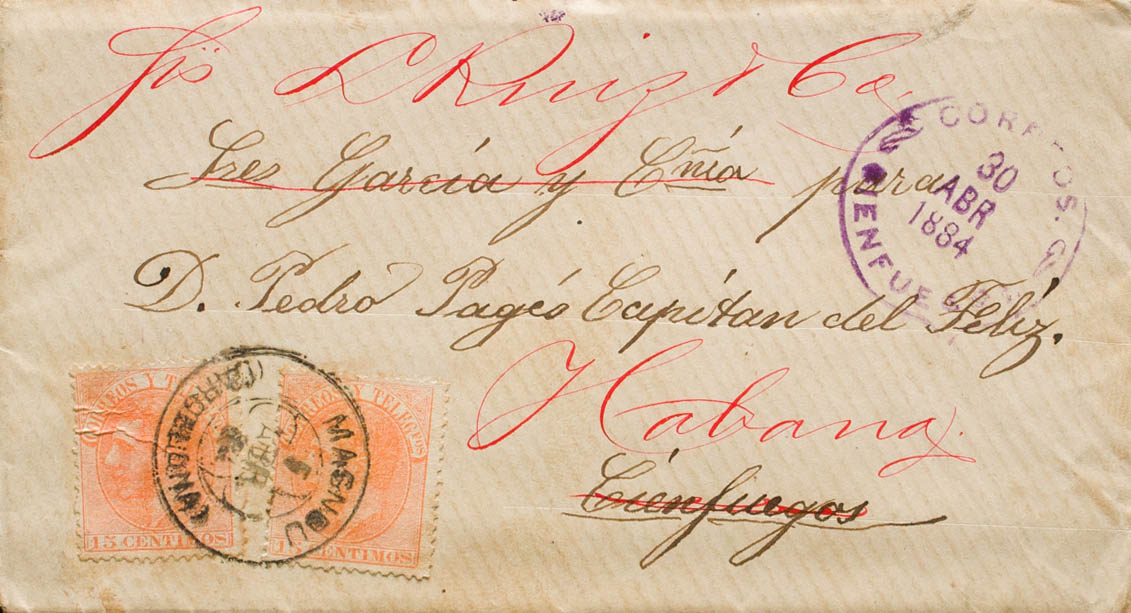 Sres L Ruiz y Ca.
Sres García y Cñía para
D. Pedro Pagés Capitan del Féliz.
Habana.
Cienfuegos
CORREOS.
30
ABR
1884
CIENFUEGOS
CORREOS Y TELEGFOS
15 CENTIMOS
CORREOS Y TELEGFOS
15 CENTIMOS
MASNOU
ABR
(BARCELONA)